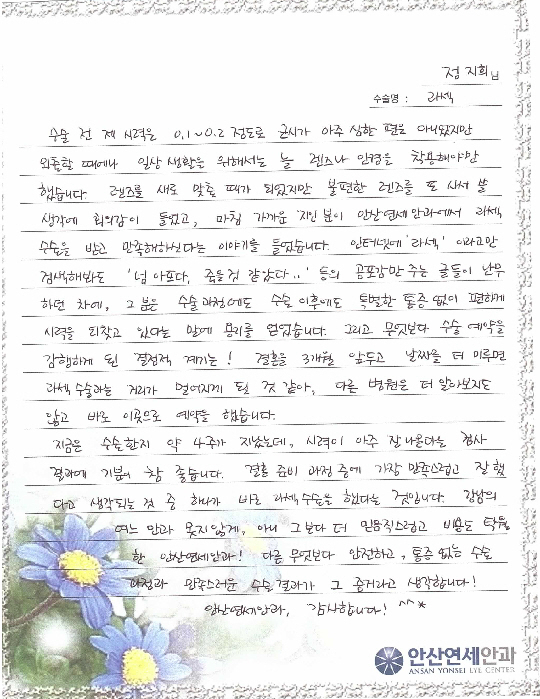 정지희님
수술명 : 라섹
수술 전 제 시력은 0.1~0.2 정도로 근시가 아주 심한 편은 아니었지만
외출할 때에나 일상생활을 위해서는 늘 렌즈나 안경을 착용해야만
했습니다. 렌즈를 새로 맞출 때가 되었지만 불편한 렌즈를 또 사서 쓸
생각에 회의감이 들었고, 마침 가까운 지인 분이 안산연세안과에서 라섹
수술을 받고 만족해하신다는 이야기를 들었습니다. 인터넷에 '라섹' 이라고만
검색해봐도 '넘 아프다, 죽을것 같았다..' 등의 공포감만 주는 글들이 난무
하던 차에, 그 분은 수술과정에도 수술 이후에도 특별한 통증 없이 편하게
시력을 되찾고 있다는 말에 용기를 얻었습니다. 그리고 무엇보다 수술 예약을
감행하게 된 결정적 계기는! 결혼을 3개월 앞두고 날짜를 더 미루면
라섹 수술과는 거리가 멀어지게 될 것 같아, 다른 병원을 더 알아보지도
않고 바로 이곳으로 예약을 했습니다.
지금은 수술한지 약 4주가 지났는데, 시력이 아주 잘 나온다는 검사
결과에 기분이 참 좋습니다. 결혼 준비 과정 중에 가장 만족스럽고 잘 했
다고 생각되는 것 중 하나가 바로 라섹수술을 했다는 것입니다. 강남의
여느 안과 못지 않게, 아니 그보다 더 믿음직스럽고 비용도 탁월
한 안산연세안과! 다른 무엇보다 안전하고, 통증 없는 수술
과정과 만족스러운 수술결과가 그 증거라고 생각합니다!
안산연세안과, 감사합니다! ^^*
안산연세안과
ANSAN YONSEI EYE CENTER